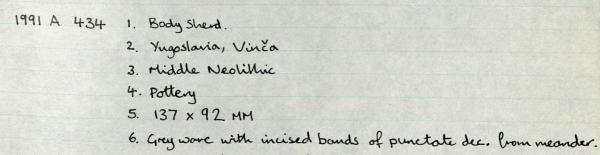 1991 A 434 1. Body Sherd.
2. Yugoslavia, Vinča
3. Middle Neolithic
4. Pottery
5. 137 x 92 MM
6. Grey ware with incised bands of punctate dec. from meander.